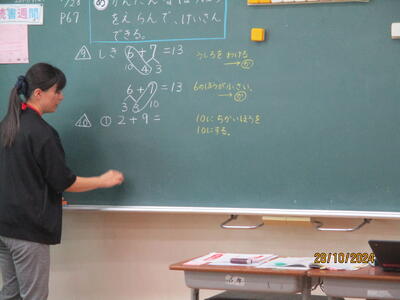 読書週間
/28
P67
め かんたんなほうほう
をえらんで、けいさん
できる。
9 しき 6+7=13
10 4 3
うしろをわける
→か
6+7=13
3 3 10
6のほうが小さい。
→か
10 ① 2+9=
10にちかいほうを
10にする。
28/10/2024